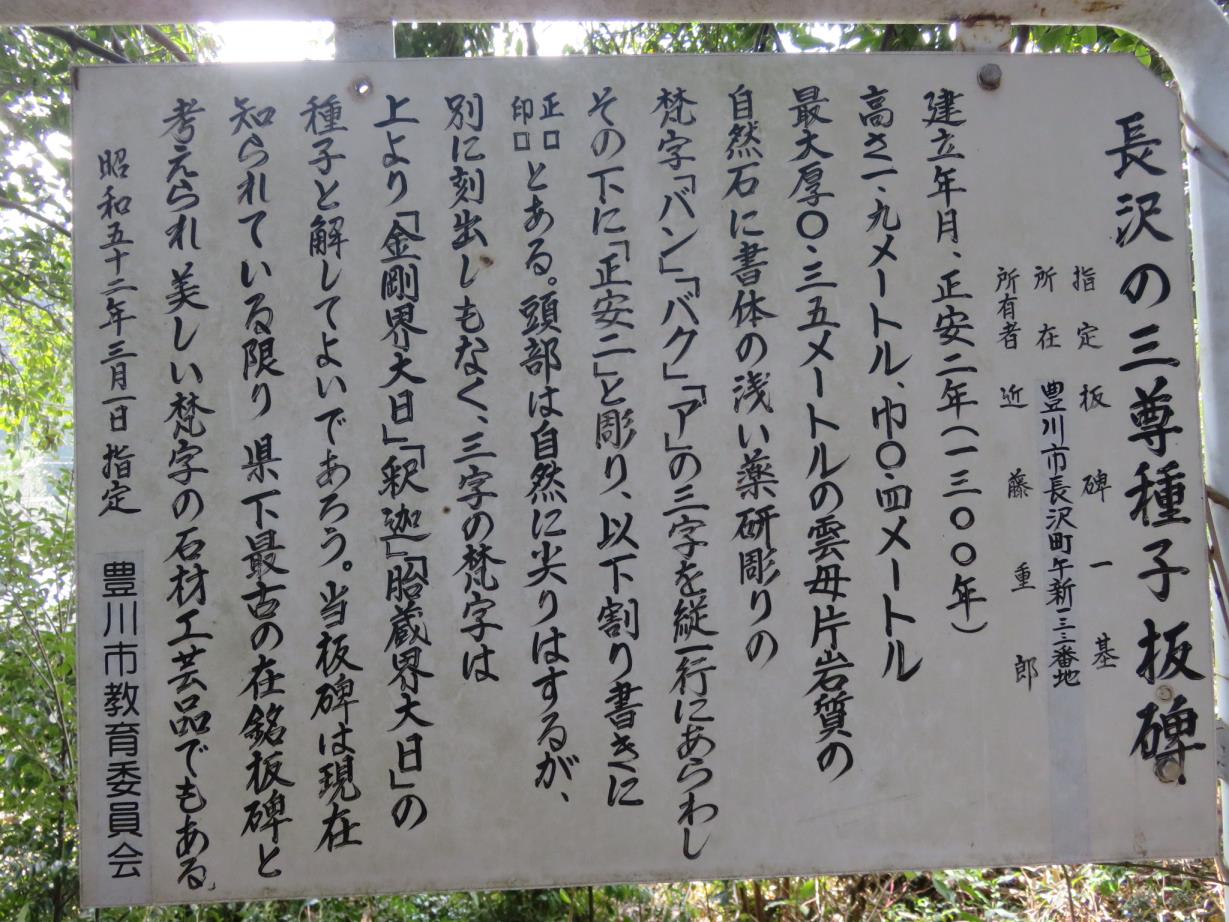 長沢の三尊種子板碑
指定 板碑一基
所在 豊川市長沢町午新一三三番地
所有者 近藤重郎
建立年月、正安二年(一三〇〇年)
高さ一、九メートル、巾〇・四メートル
最大厚〇・三五メートルの雲母片岩質の
自然石に書体の浅い薬研彫りの
梵字「バン」「バク」「ア」の三字を縦一行にあらわし
その下に「正安二」と彫り、以下割り書きに
正□
印□とある。頭部は自然に尖りはするが、
別に刻出しもなく、三字の梵字は
上より「金剛界大日」「釈迦」「胎蔵界大日」の
種子と解してよいであろう。当板碑は現在
知られている限り県下最古の在銘板碑と
考えられ美しい梵字の石材工芸品でもある。
昭和五十二年三月一日指定 豊川市教育委員会